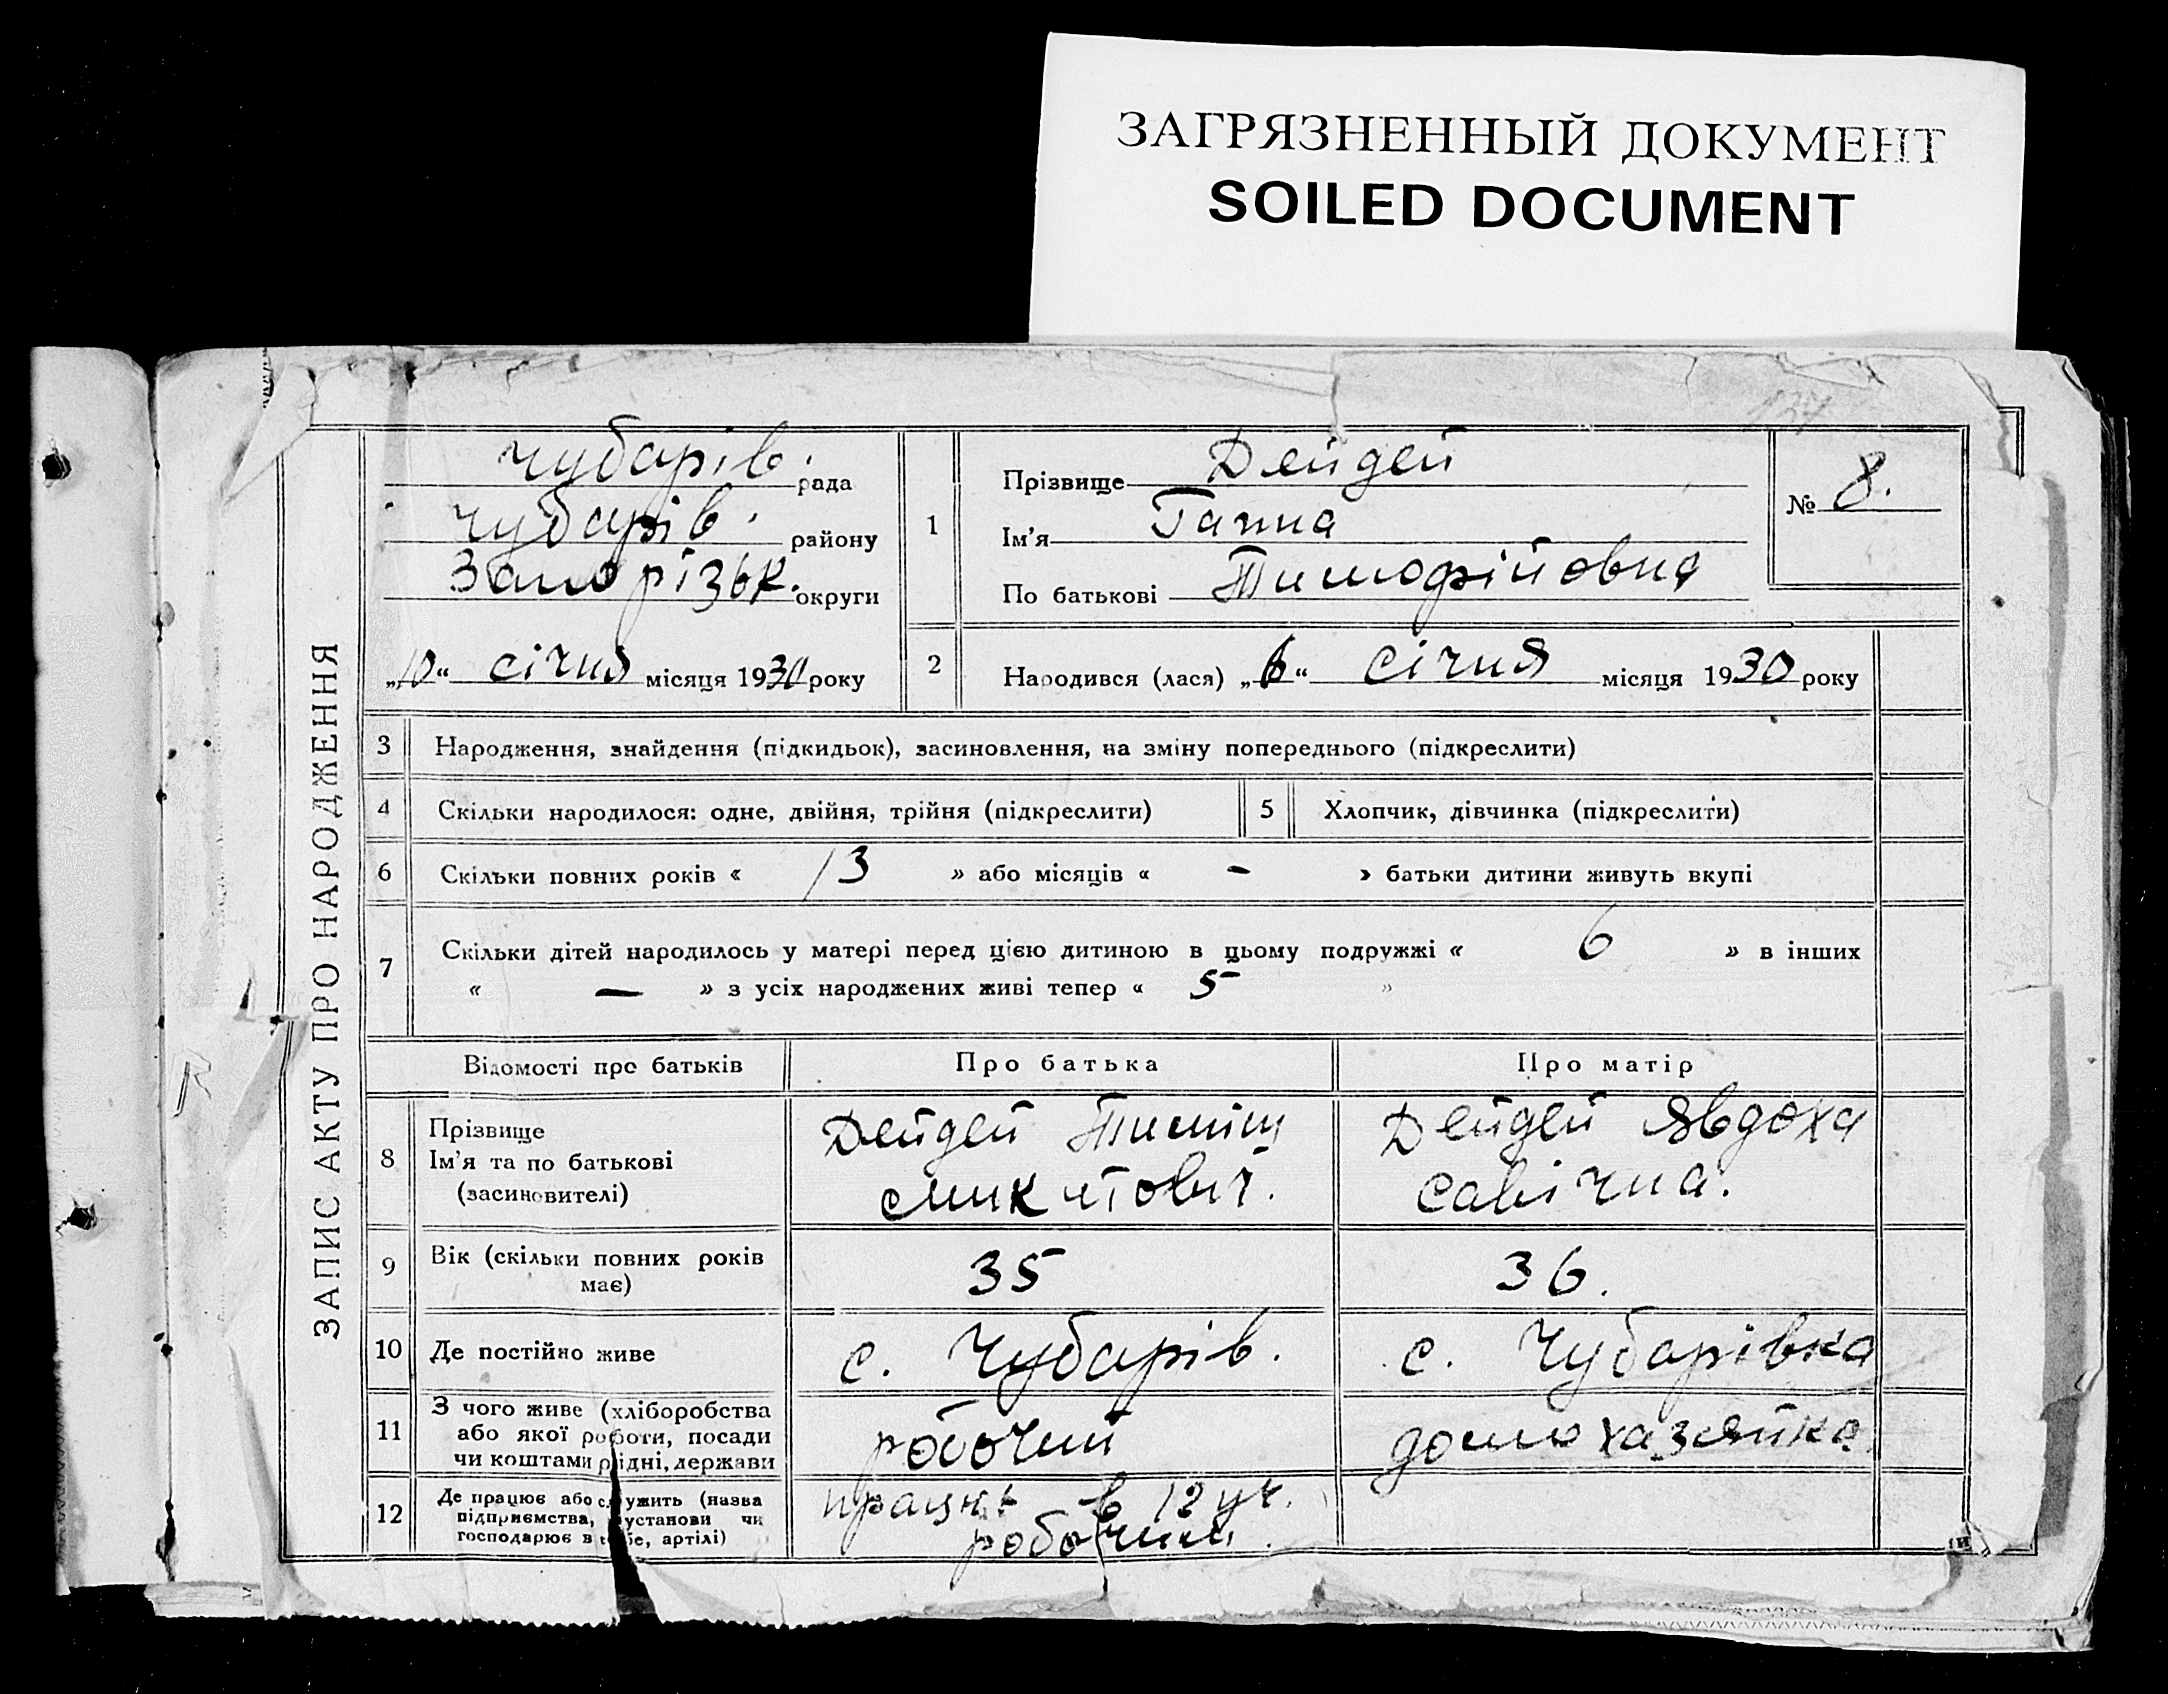 ЗАГРЯЗНЕННЫЙ ДОКУМЕНТ
SOILED DOCUMENT
ЗАПИС АКТУ ПРО НАРОДЖЕННЯ
Чубарів. рада
Чубарів. району
Запорізьк. округи
„10“ січня місяця 1930 року
1
Прізвище Дейдей
Ім'я Ганна
По батькові Тимофрійовна
№ 8.
2 Народився (лася) „6“ січня місяця 1930 року
3 Народження, знайдення (підкидьок), засиновлення, на зміну попереднього (підкреслити)
4 Скільки народилося: одне, двійня, трійня (підкреслити) 5 Хлопчик, дівчинка (підкреслити)
6 Скільки повних років « 13 » або місяців « - » батьки дитини живуть вкупі
7 Скільки дітей народилось у матері перед цією дитиною в цьому подружжі « 6 » в інших
« — » з усіх народжених живі тепер « 5 »
Відомості про батьків Про батька Про матір
8 Прізвище
Ім'я та по батькові
(засиновителі)
Дейдей Тиміш
Микитович.
Дейдей Явдоха
Савічна.
9 Вік (скільки повних років
має)
35
36.
10 Де постійно живе
с. Чубарів.
с. Чубарівка
11 З чого живе (хліборобства
або якої роботи, посади
чи коштами рідні, держави
робочий
домохазяйка.
12 Де працює або служить (назва
підприємства, установи чи
господарює в себе, артілі)
в 12
робочим.